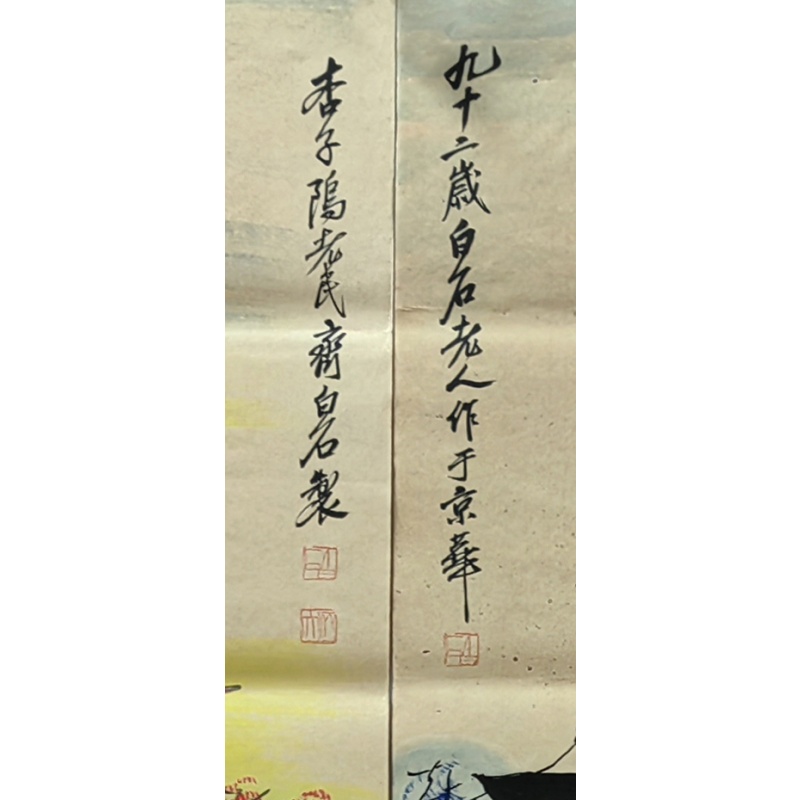 九十二歲白石老人作于京華
杏子隖老民齊白石製